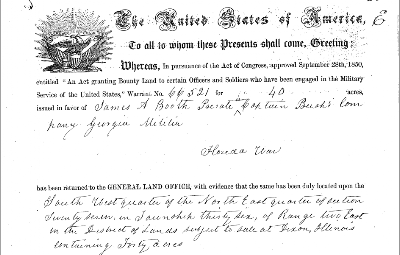 The United States of America,
To all to whom these Presents shall come, Greeting:
Whereas, In pursuance of the Act of Congress, approved September 28th, 1850,
entitled "An Act granting Bounty Land to certain Officers and Soldiers who have been engaged in the Military
Service of the United States," Warrant No. 66321 for 40 acres,
issued in favor of James A Booth Private in Captain Com
pany Georgia Militia
Florida War
has been returned to the GENERAL LAND OFFICE, with evidence that the same has been duly located upon the
South West quarter of the North East quarter of section
Twenty seven in Township thirty six, of Range two East
in the District of Lands subject to sale at Dixon, Illinois
containing Forty acres